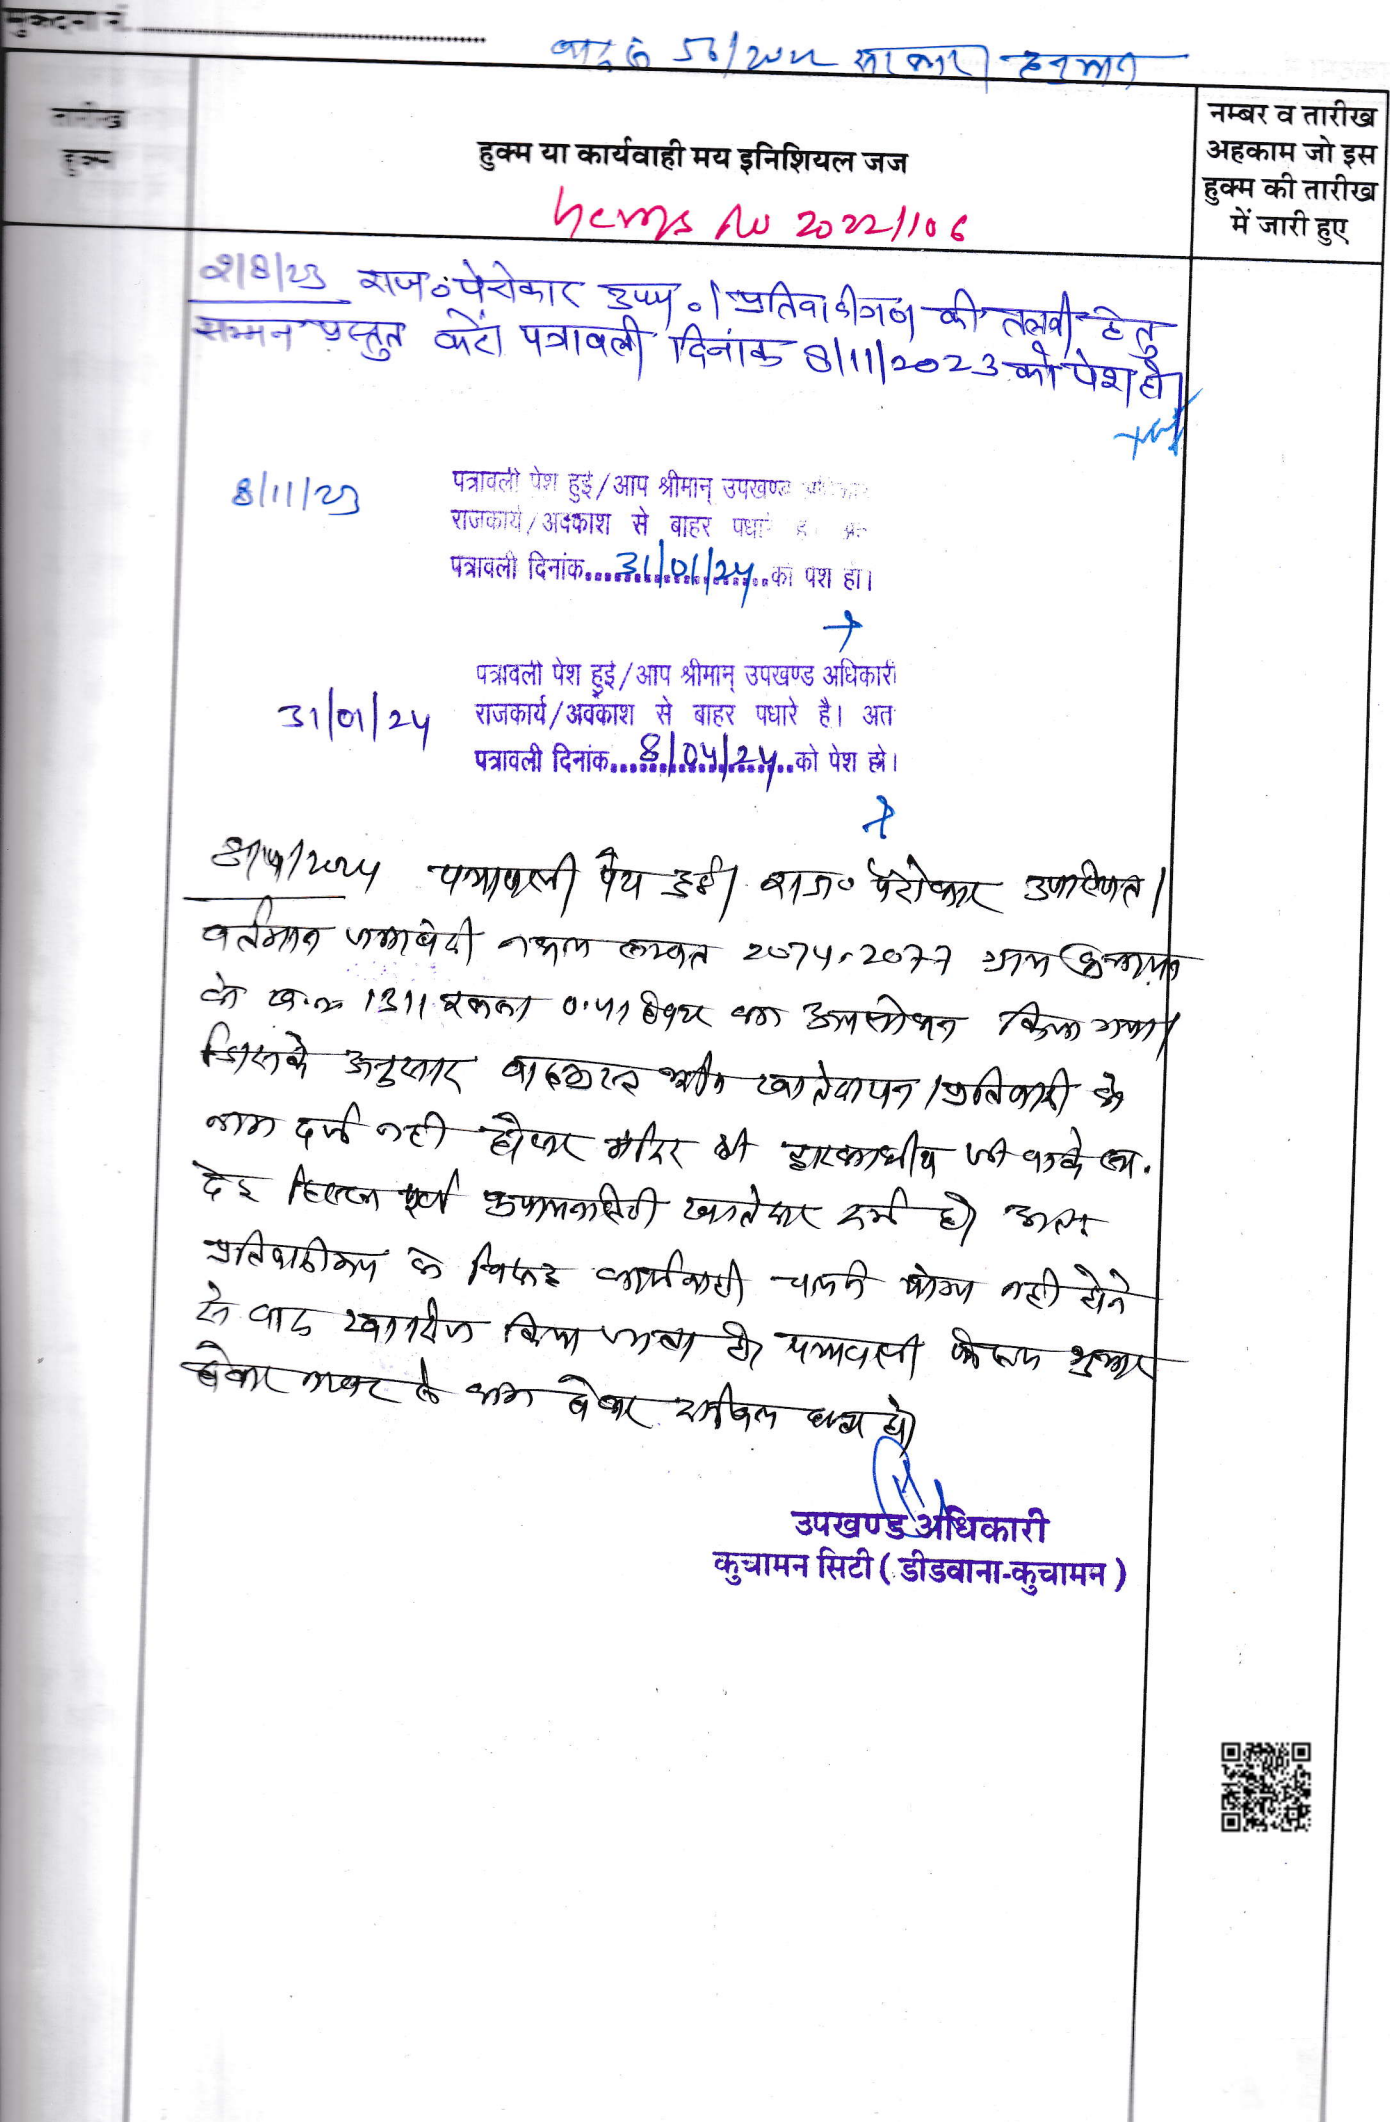 मुकदमा नं.
वाद सं 56/2022 सरकार / हनुमान
तारीख
हुक्म
हुक्म या कार्यवाही मय इनिशियल जज
नम्बर व तारीख
अहकाम जो इस
हुक्म की तारीख
में जारी हुए
No 2022/106
2/8/23 राज० पेरोकार उप० । प्रतिवादीगण की तलबी हेतु
सम्मन प्रस्तुत करें। पत्रावली दिनांक 8/11/2023 को पेश हो
8/11/23
पत्रावली पेश हुई/आप श्रीमान् उपखण्ड अधिकारी
राजकार्य/अवकाश से बाहर पधारे है। अत
पत्रावली दिनांक 31/01/24 को पेश हो।
31/01/24
पत्रावली पेश हुई/आप श्रीमान् उपखण्ड अधिकारी
राजकार्य/अवकाश से बाहर पधारे है। अत
पत्रावली दिनांक 8/04/24 को पेश हो।
8/4/2024 पत्रावली पेश हुई। राज० पेरोकार उपस्थित।
वर्तमान जमाबंदी नकल सम्वत 2074-2077 ग्राम
के ख.न. 1311 रकबा 0.41 हेक्टर का अवलोकन किया गया।
जिसके अनुसार वादग्रस्त भूमि खातेदारान / प्रतिवादी के
नाम दर्ज नही होकर मंदिर श्री द्वारकाधीश जी
हिस्सा पूर्ण खातेदार दर्ज है। अतः
प्रतिवादीगण के विरूद्ध कार्यवाही चलने योग्य नही होने
से वाद खारीज किया जाता है। पत्रावली फैसल शुमार
होकर नम्बर से कम होकर दाखिल दफ्तर हो।
उपखण्ड अधिकारी
कुचामन सिटी ( डीडवाना-कुचामन )